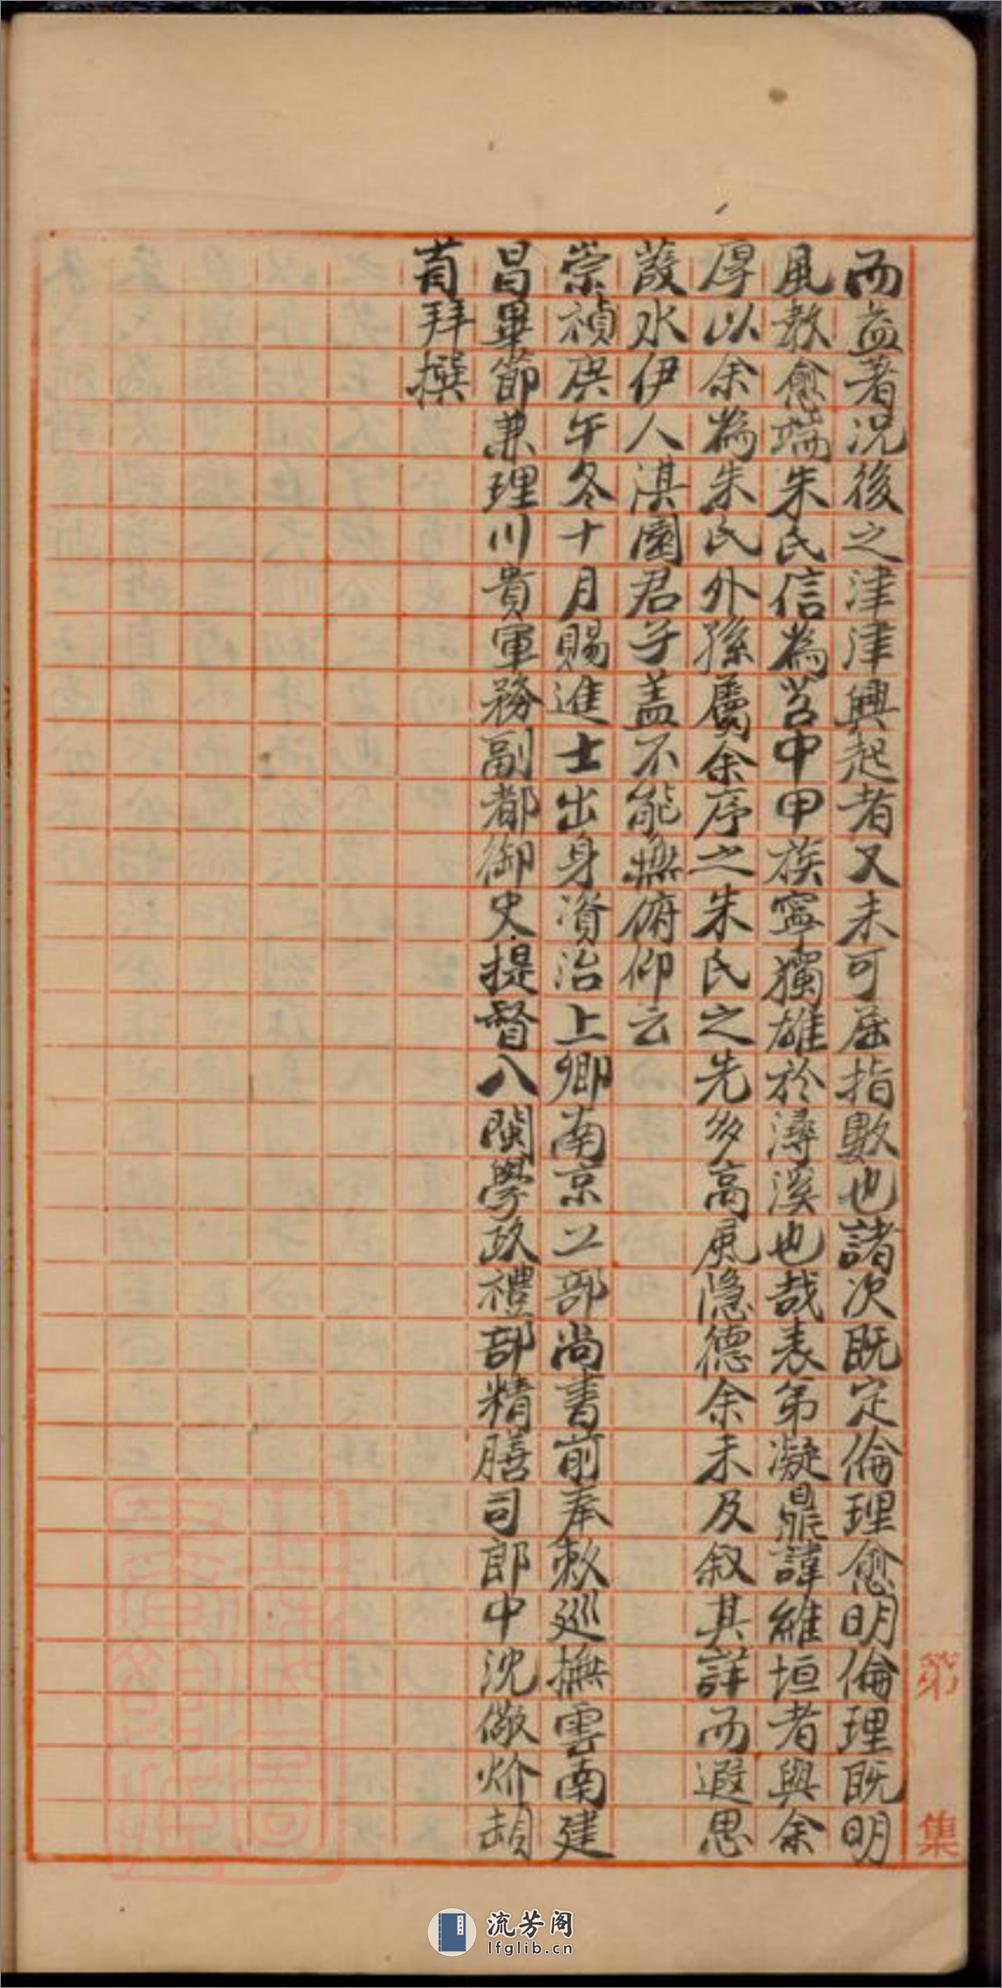 而益著况後之津津興起者又未可屈指數也諸次既定倫理愈明倫理既明
風教愈端朱氏信為苕中甲族寧獨雄於潯溪也哉表弟凝鼎諱維垣者與余
厚以余為朱氏外孫屬余序之朱氏之先多高風隐德余未及叙其詳而遐思
葭水伊人淇園君子盖不能無俯仰云
崇禎庚午冬十月賜進士出身資治上卿南京工部尚書前奉敕廵撫雲南建
昌畢節兼理川貴軍務副都御史提督八閩學政禮部精膳司郎中沈儆炌頓
首拜撰
第
集
流芳阁
lfglib.cn